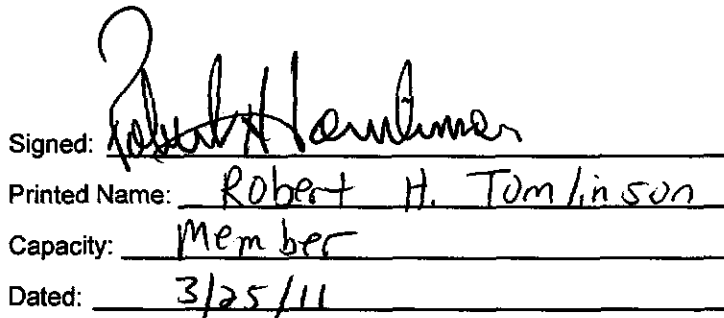 Signed: Robert H Tomlinson
Printed Name: Robert H. Tomlinson
Capacity: Member
Dated: 3/25/11